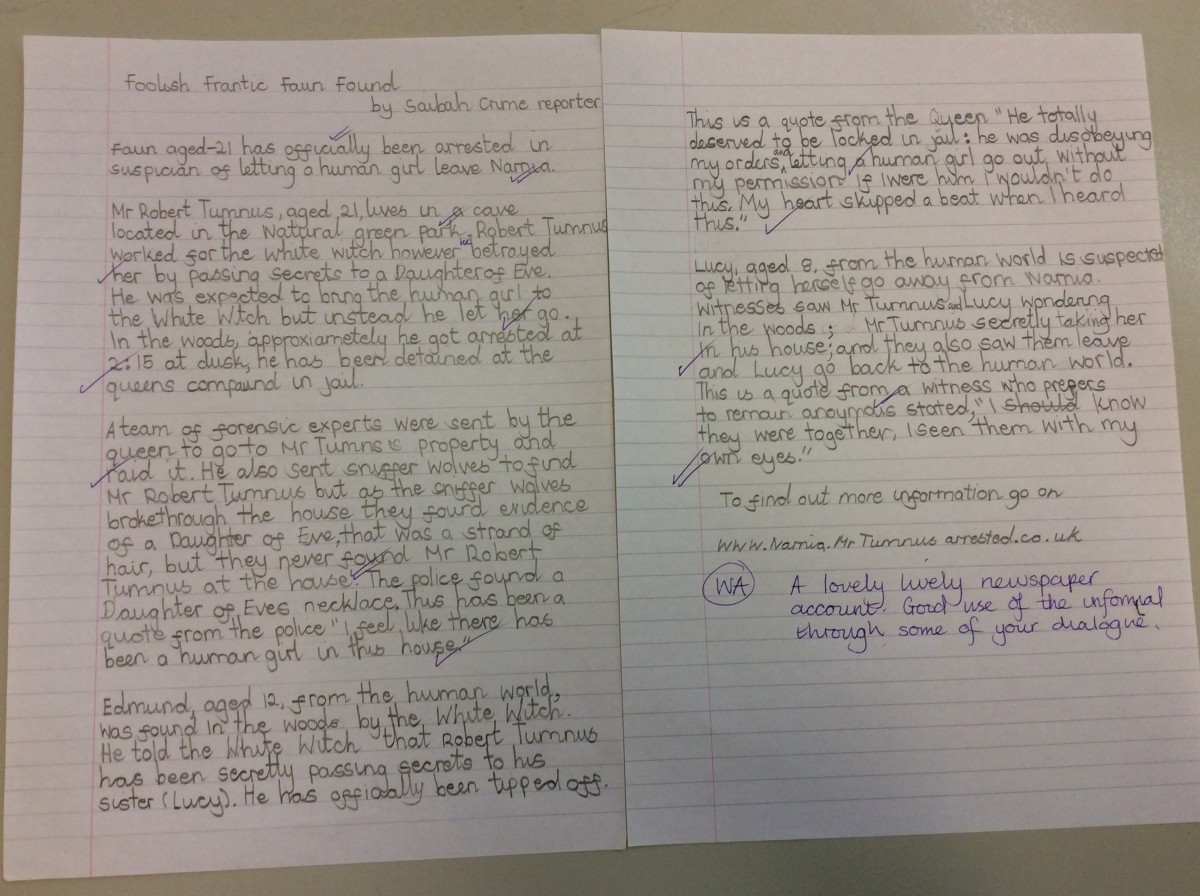 Foolish Frantic Faun Found
by Saubah Crime reporter
Faun aged-21 has officially been arrested in
suspician of letting a human girl leave Narnia.
Mr Robert Tumnus, aged 21, lives in a cave
located in the Natural green park. Robert Tumnus
worked for the white witch however he betrayed
her by passing secrets to a Daughter of Eve.
He was expected to bring the human girl to
the White Witch but instead he let her go.
In the woods, approxiametely he got arrested at
2:15 at dusk, he has been detained at the
queens compaund in jail.
A team of forensic experts were sent by the
queen to go to Mr Tumns's property and
raid it. He also sent sniffer wolves to find
Mr Robert Tumnus but as the sniffer wolves
brokethrough the house they found evidence
of a Daughter of Eve, that was a strand of
hair, but they never found Mr Robert
Tumnus at the house. The police found a
Daughter of Eves necklace. This has been a
quote from the police "I feel like there has
been a human girl in this house."
Edmund, aged 12, from the human world,
was found in the woods by the White Witch.
He told the White Witch that Robert Tumnus
has been secretly passing secrets to his
sister (Lucy). He has officially been tipped off.
This is a quote from the Queen "He totally
deserved to be locked in jail: he was disobeying
my orders, and letting a human girl go out without
my permission if I were him I wouldn't do
this. My heart skipped a beat when I heard
this."
Lucy, aged 8, from the human world is suspected
of letting herself go away from Narnia.
Witnesses saw Mr Tumnus and Lucy wondering
in the woods; Mr Tumnus secretly taking her
in his house; and they also saw them leave
and Lucy go back to the human world.
This is a quote from a witness who prefers
to remain anoymous stated, "I should know
they were together, I seen them with my
own eyes."
To find out more information go on
www.Narnia.Mr Tumnus arrested.co.uk
WA A lovely lively newspaper
account. Good use of the informal
through some of your dialogue.